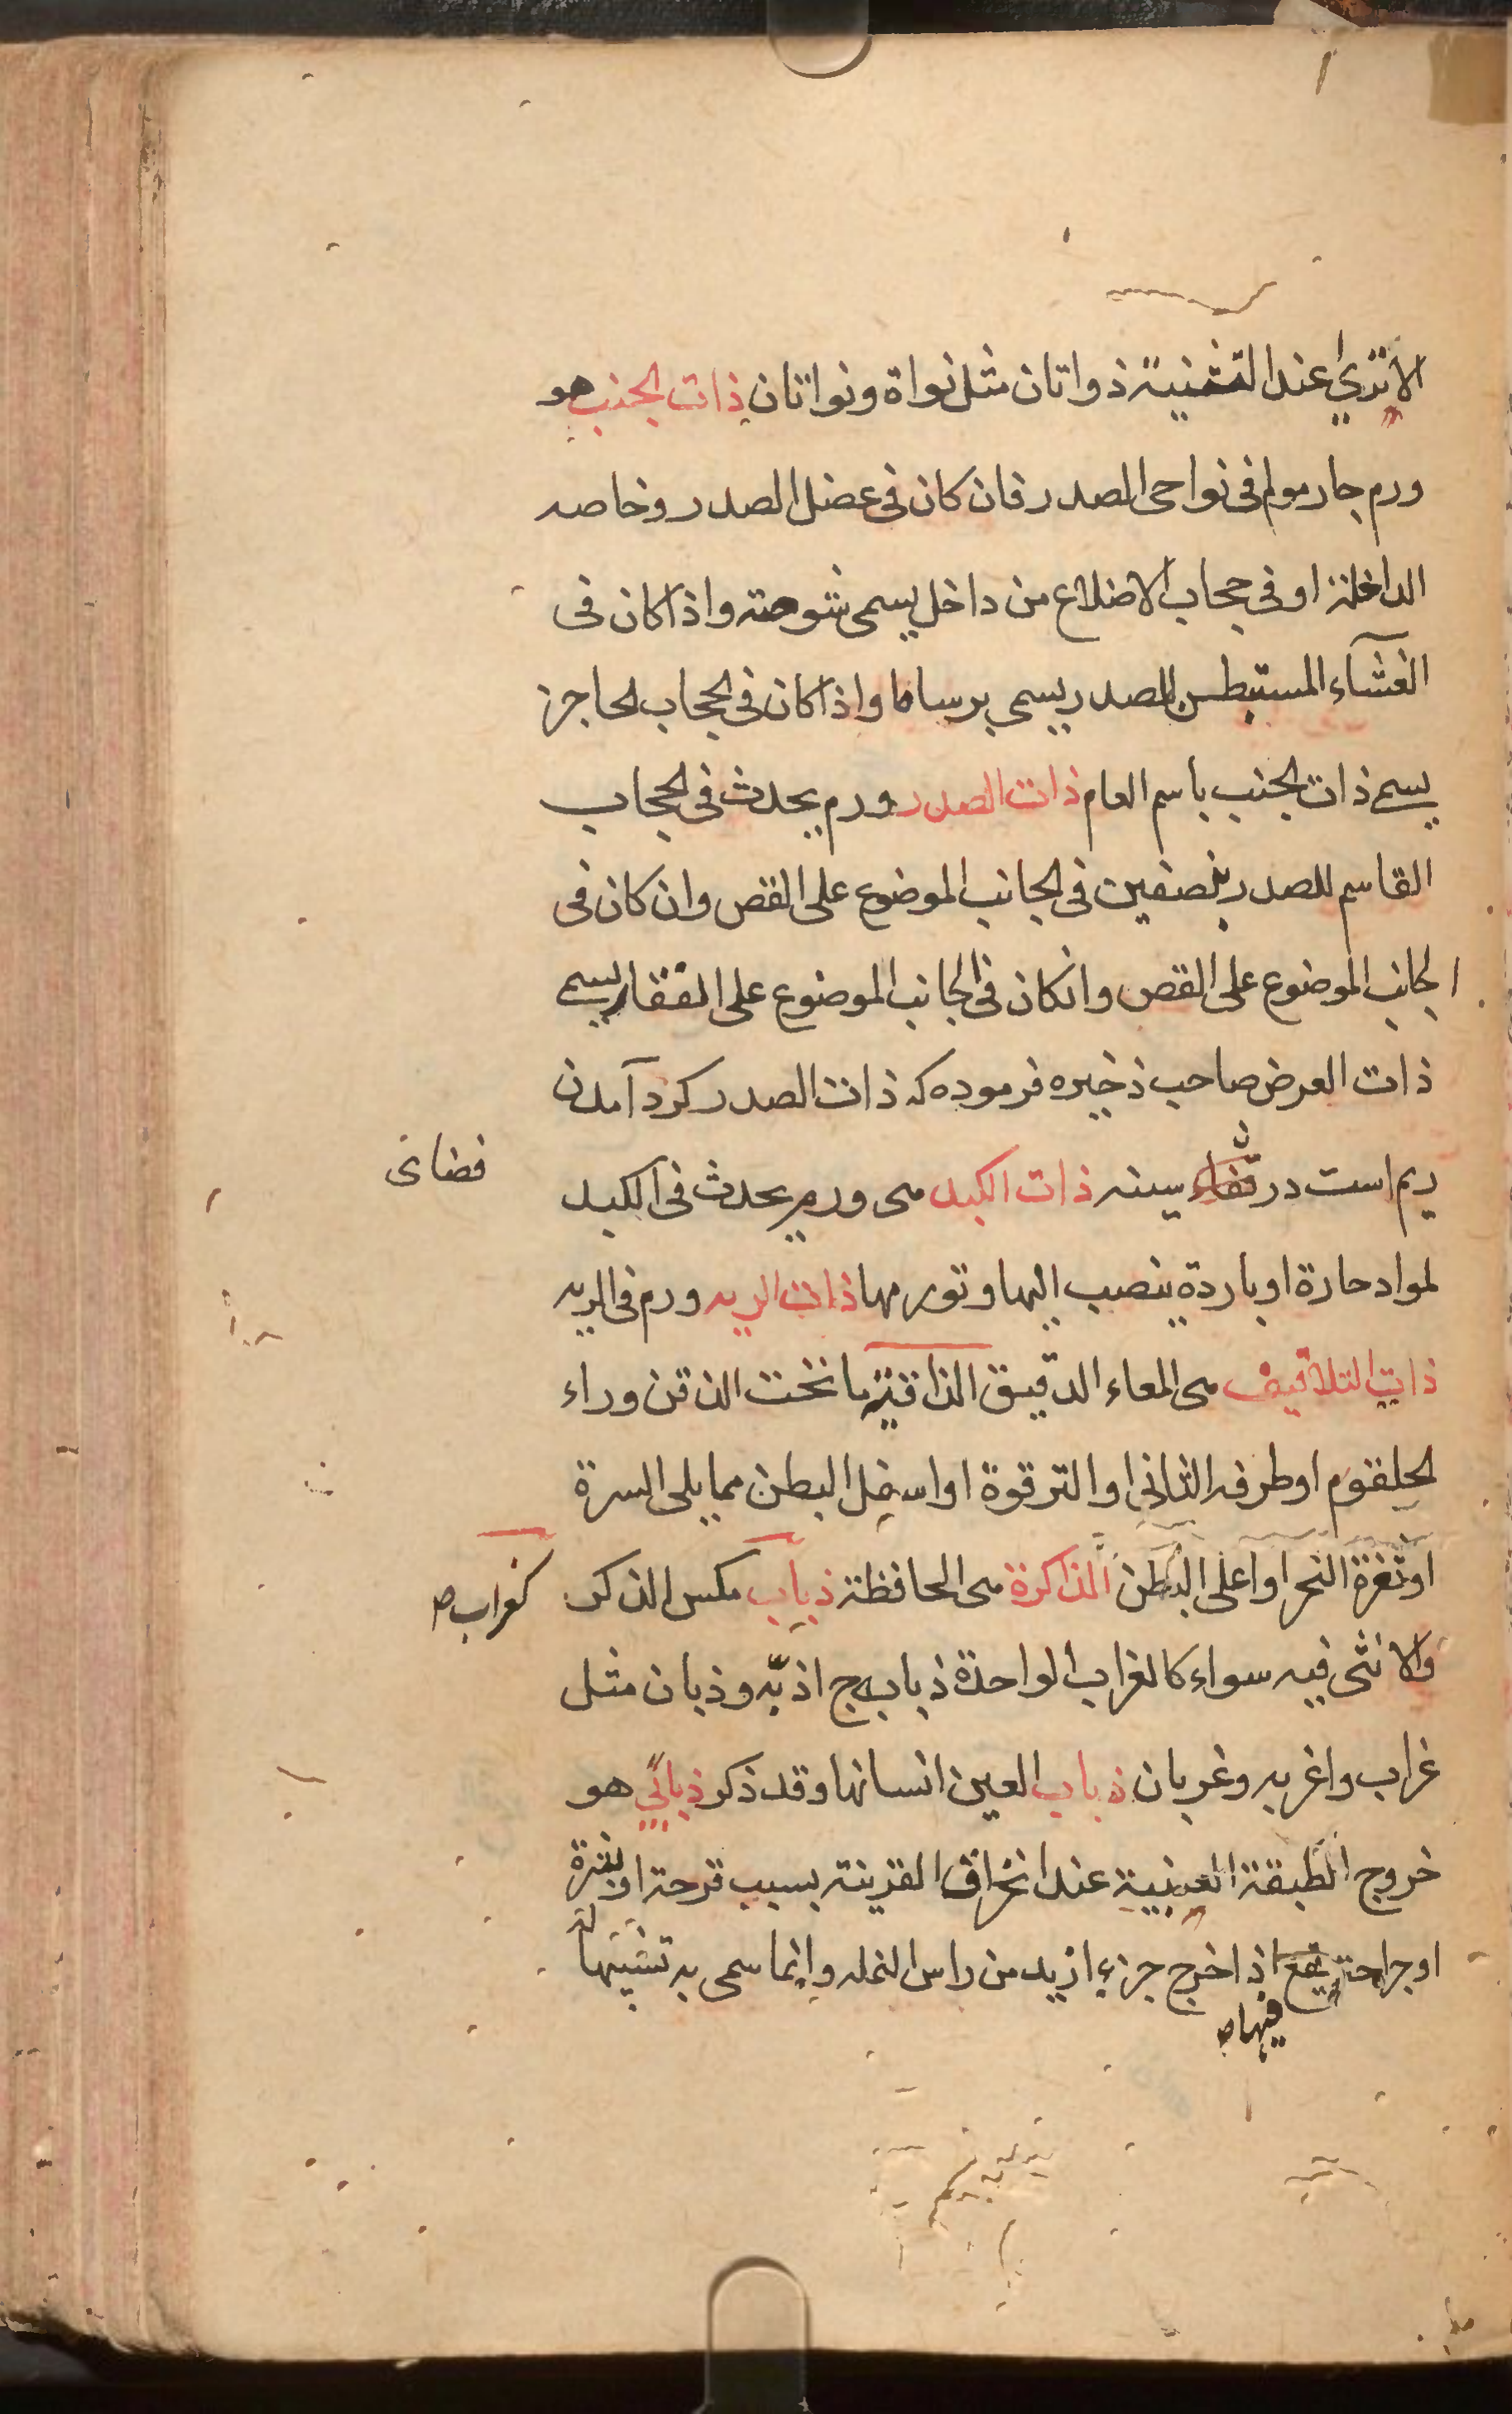 الا تري عند التثنية ذواتان مثل نواة ونواتان ذات الجنب هو
ورم حار مولم فى نواحى الصدر فان كان فى عضل الصدر وخاصه
الداخلة او فى حجاب الاضلاع من داخل يسمى شوصته واذا كان فى
الغشآء المستبطن للصدر يسمى برساما واذا كان فى الحجاب الحاجز
يسمى ذات الجنب باسم العام ذات الصدر ورم يحدث فى الحجاب
القاسم للصدر بنصفين فى الجانب الموضوع على القص وان كان فى
الجانب الموضوع على القص وانكان فى الجانب الموضوع على الفقار يسمى
ذات العرض صاحب ذخيره فرموده كه ذات الصدر كرد آمدن
ريم است در سينه ذات الكبد هى ورم يحدث فى الكبد
فضاى
لمواد حارة او باردة ينصب اليها وتورمها ذات الريه ورم فى الريه
ذات التلافيف هى المعاء الدقيق الذاقنة ما تحت الذقن وراء
الحلقوم او طرفه الثانى او الترقوة او اسفل البطن مما يلى السرة
او ثغرة النحر او اعلى البطن الذاكرة هى الحافظة ذباب مكس الذكر
كغراب ص
والانثى فيه سواء كالغراب الواحدة ذبابه ج اذبّه وذبان مثل
غراب واغربه وغربان ذباب العين انسانها وقد ذكر ذبابي هو
خروج الطبقة العنبية عند انخراق القرنية بسبب قرحة او بثرة
او جراحة يقع اذا خرج جزء ازيد من راس النمله وانما سمى به تشبيها له
فيها ص